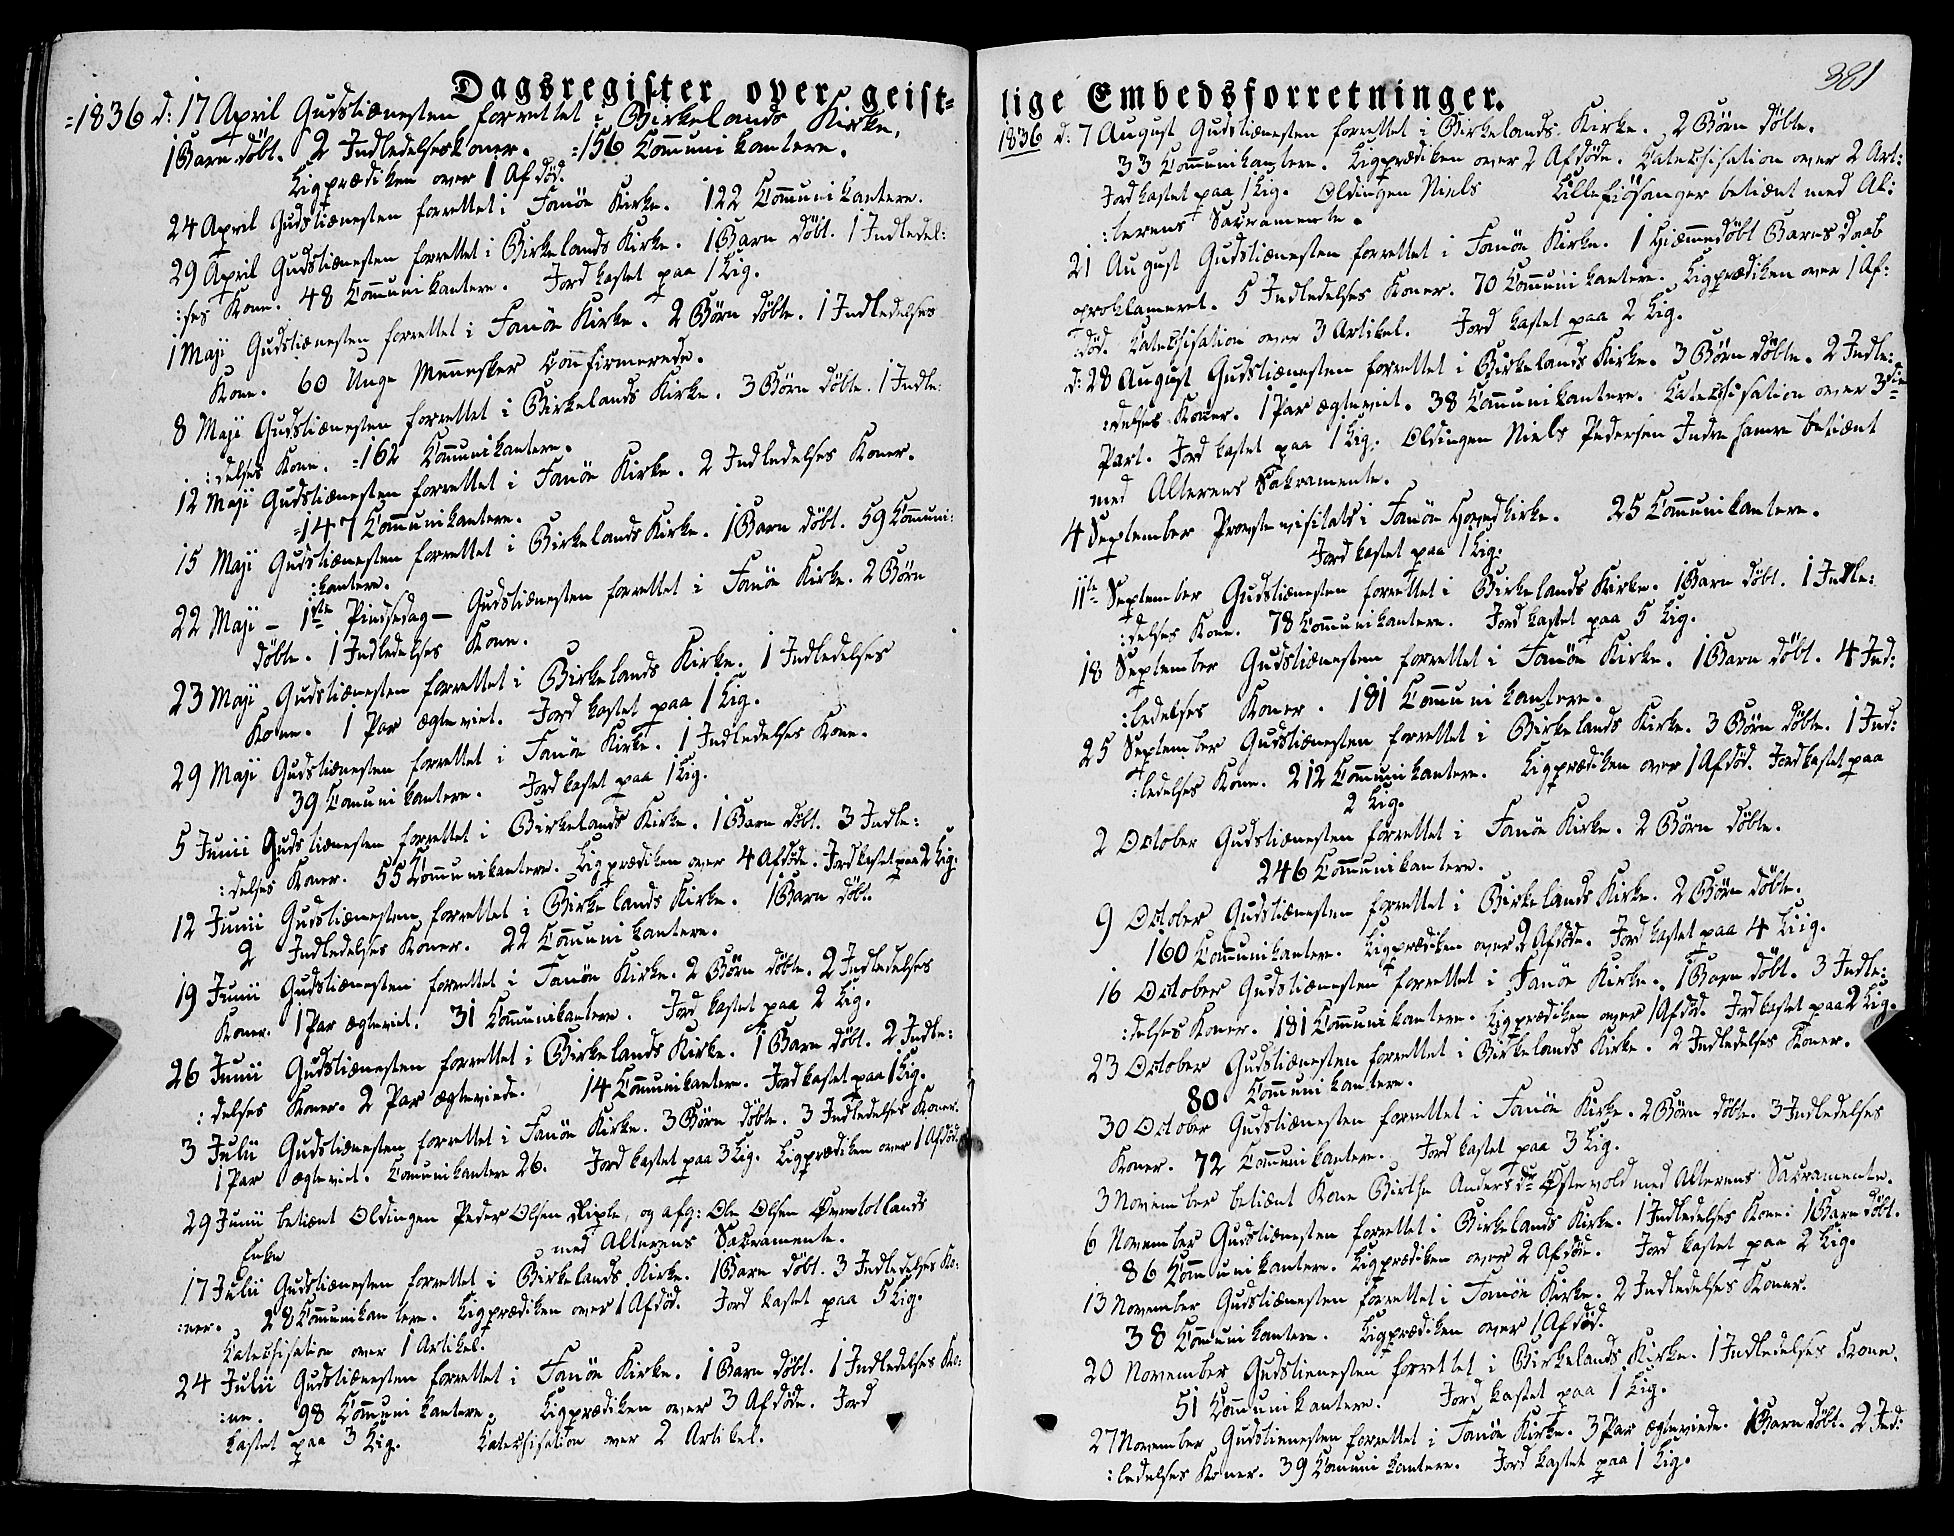 Dagsregister over geist-
=1836 d: 17 April Gudstiænesten forrettet i Birkelands Kirke,
1 Barn döbt. 2 Indledelses Koner. =156 Communikantere.
Ligprædiken over 1 Afdöd.
24 April Gudstiænesten forrettet i Fanöe Kirke. 122 Communikantere.
29 April Gudstiænesten forrettet i Birkelands Kirke. 1 Barn döbt. 1 Indledel:
:ses Kone. 48 Communikantere. Jord kastet paa 1 Lig.
1 Maji Gudstiænesten forrettet i Fanöe Kirke. 2 Börn döbte. 1 Indledelses
Kone. 60 Unge Mennesker Confirmerede.
8 Maji Gudstiænesten forrettet i Birkelands Kirke. 3 Börn döbte. 1 Indle:
:delses Kone. =162 Communikantere.
12 Maji Gudstiænesten forrettet i Fanöe Kirke. 2 Indledelses Koner.
=147 Communikantere.
15 Maji Gudstiænesten forrettet i Birkelands Kirke. 1 Barn döbt. 59 Communi:
:kantere.
22 Maji - 1ste Pindsedag - Gudstiænesten forrettet i Fanöe Kirke. 2 Börn
döbte. 1 Indledelses Kone.
23 Maji Gudstiænesten forrettet i Birkelands Kirke. 1 Indledelses
Kone. 1 Par ægteviet. Jord kastet paa 1 Lig.
29 Maji Gudstiænesten forrettet i Fanöe Kirke. 1 Indledelses Kone.
39 Comunikantere. Jord kastet paa 1 Lig.
5 Junii Gudstiænesten forrettet i Birkelands Kirke. 1 Barn döbt. 3 Indle:
:delses Koner. 55 Communikantere. Ligprædiken over 4 Afdöde. Jord kastet paa 2 Lig.
12 Junii Gudstiænesten forrettet i Birkelands Kirke. 1 Barn döbt.
2 Indledelses Koner. 22 Communikantere.
19 Junii Gudstiænesten forrettet i Fanöe Kirke. 2 Börn döbte. 2 Indledelses
Koner. 1 Par ægteviet. 31 Communikantere. Jord kastet paa 2 Lig.
26 Junii Gudstiænesten forrettet i Birkelands Kirke. 1 Barn döbt. 2 Indle:
:delses Koner. 2 Par ægteviede. 14 Communikantere. Jord kastet paa 1 Lig.
3 Julii Gudstiænesten forrettet i Fanöe Kirke. 3 Börn döbte. 3 Indledelses Koner.
1 Par ægteviet. Comunikantere 26. Jord kastet paa 3 Lig. Ligprædiken over 1 Afdöd.
29 Junii betient Oldingen Peder Olsen Riple, og afg: Ole Olsen Övretotlands
Enke med Alterens Sacramente.
17 Julii Gudstiænesten forrettet i Birkelands Kirke. 1 Barn döbt. 3 Indledelses Ko:
:ner. 28 Communikantere. Ligprædiken over 1 Afdöd. Jord kastet paa 5 Lig.
Catechisation over 1 Artikel.
24 Julii Gudstiænesten forrettet i Fanöe Kirke. 1 Barn döbt. 1 Indledelses Ko:
:ne. 98 Communikantere. Ligprædiken over 3 Afdöde. Jord
kastet paa 3 Lig. Catechisation over 2 Artikel.
381
lige Embedsforretninger.
1836 d: 7 August Gudstiænesten forrettet i Birkelands Kirke. 2 Börn döbte.
33 Communikantere. Ligprædiken over 2 Afdöde. Catechisation over 2 Art:
Jord kastet paa 1 Lig. Oldingen Niels Lillefiösanger betiænt med Al:
:terens Sacramente.
21 August Gudstiænesten forrettet i Fanöe Kirke. 1 Hjæmmedöbt Barns Daab
proklameret. 5 Indledelses Koner. 70 Communikantere. Ligprædiken over 1 Af:
:död. Catechisation over 3 Artikel. Jord kastet paa 2 Lig.
d: 28 August Gudstiænesten forrettet i Birkelands Kirke. 3 Börn döbte. 2 Indle:
:delses Koner. 1 Par ægteviet. 38 Communikantere. Catechisation over 3die
Part. Jord kastet paa 1 Lig. Oldingen Niels Pedersen Indre Hamre betiænt
med Alterens Sakramente.
4 September Provstevisitats i Fanöe Hovedkirke. 25 Communikantere.
Jord kastet paa 1 Lig.
11te September Gudstiænesten forrettet i Birkelands Kirke. 1 Barn döbt. 1 Indle:
:delses Kone. 78 Communikantere. Jord kastet paa 5 Lig.
18 September Gudstiænesten forrettet i Fanöe Kirke. 1 Barn döbt. 4 Ind:
:ledelses Koner. 181 Communikantere.
25 September Gudstiænesten forrettet i Birkelands Kirke. 3 Börn döbte. 1 Ind:
:ledelses Kone. 212 Communikantere. Ligprædiken over 1 Afdöd. Jord kastet paa
2 Lig.
2 October Gudstiænesten forrettet i Fanöe Kirke. 2 Börn döbte.
246 Communikantere.
9 October Gudstiænesten forrettet i Birkelands Kirke. 2 Börn döbte.
160 Communikantere. Ligprædiken over 2 Afdöde. Jord kastet paa 4 Liig.
16 October Gudstiænesten forrettet i Fanöe Kirke. 1 Barn döbt. 3 Indle:
:delses Koner. 181 Communikantere. Ligprædiken over 1 Afdöd. Jord kastet paa 2 Lig.
23 October Gudstiænesten forrettet i Birkelands Kirke. 2 Indledelses Koner.
80 Communikantere.
30 October Gudstiænesten forrettet i Fanöe Kirke. 2 Börn döbte. 3 Indledelses
Koner. 72 Communikantere. Jord kastet paa 3 Lig.
3 November betiænt Kone Birthe Andersdr Östevold med Alterens Sacramente.
6 November Gudstiænesten forrettet i Birkelands Kirke. 1 Indledelses Kone. 1 Barn döbt.
86 Communikantere. Ligprædiken over 2 Afdöde. Jord kastet paa 2 Lig.
13 November Gudstiænesten forrettet i Fanöe Kirke. 2 Indledelses Koner.
38 Communikantere. Ligprædiken over 1 Afdöd.
20 November Gudstienesten forrettet i Birkelands Kirke. 1 Indledelses Kone.
51 Communikantere. Jord kastet paa 1 Lig.
27 November Gudstienesten forrettet i Fanöe Kirke. 3 Par ægteviede. 1 Barn döbt. 2 Ind:
:ledelses Koner. 39 Comunikantere. Jord kastet paa 1 Lig.